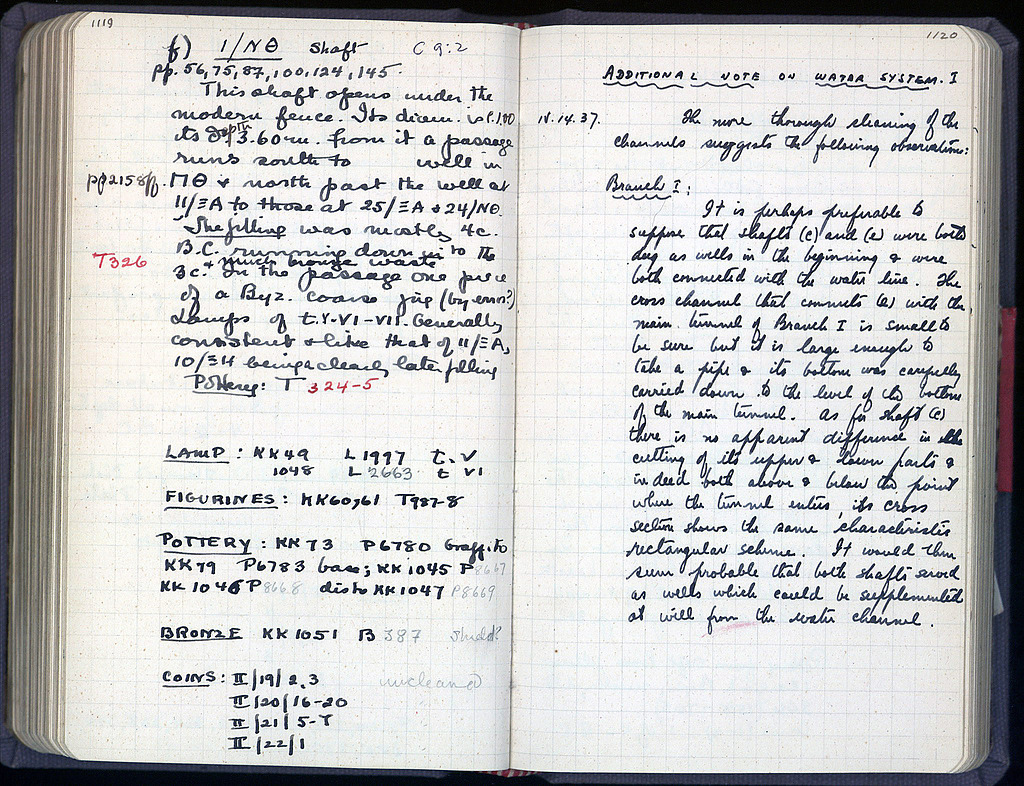 1119
f) 1/ΝΘ Shaft C 9:2
pp. 56, 75, 87, 100, 124, 145.
This shaft opens under the
modern fence. Its diam. is c. 1.00
its depth 3.60m. From it a passage
runs south to well in
pp2158ff. ΠΘ & north past the well at
11/ΞΑ to those at 25/ΞΑ & 24/ΝΘ.
The filling was mostly 4c.
B.C. running down in to the
T326 & much waste
3c. In the passage one piece
of a Byz. coarse jug (by error?)
Lamps of t. V-VI-VII. Generally
consistent & like that of 11/ΞΑ,
10/ΞΗ being clearly later filling
Pottery: T 324-5
LAMP: KK49 L1997 t. V
1048 L 2663 t VI
FIGURINES: KK60,61 T987-8
POTTERY: KK73 P6780 Graffito
KK79 P6783 base; KK1045 P8667
KK 1046 P8668 dish KK1047 P8669
BRONZE KK1051 B 387 Shield?
COINS: II/19/2.3 uncleaned
II/20/16-20
II/21/5-7
II/22/1
1120
ADDITIONAL NOTE ON WATER SYSTEM. I
IV.14.37. The more thorough cleaning of the
channels suggests the following observations:
Branch I:
It is perhaps preferable to
suppose that shafts (c) and (e) were both
dug as wells in the beginning & were
both connected with the water line. The
cross channel that connects (e) with the
main tunnel of Branch I is small to
be sure but it is large enough to
take a pipe & its bottom was carefully
carried down to the level of the bottom
of the main tunnel. As for shaft (c)
there is no apparent difference in the
cutting of its upper & lower parts &
indeed both above & below the point
where the tunnel enters, its cross
section shows the same characteristic
rectangular scheme. It would then
seem probable that both shafts served
as wells which could be supplemented
at will from the water channel.